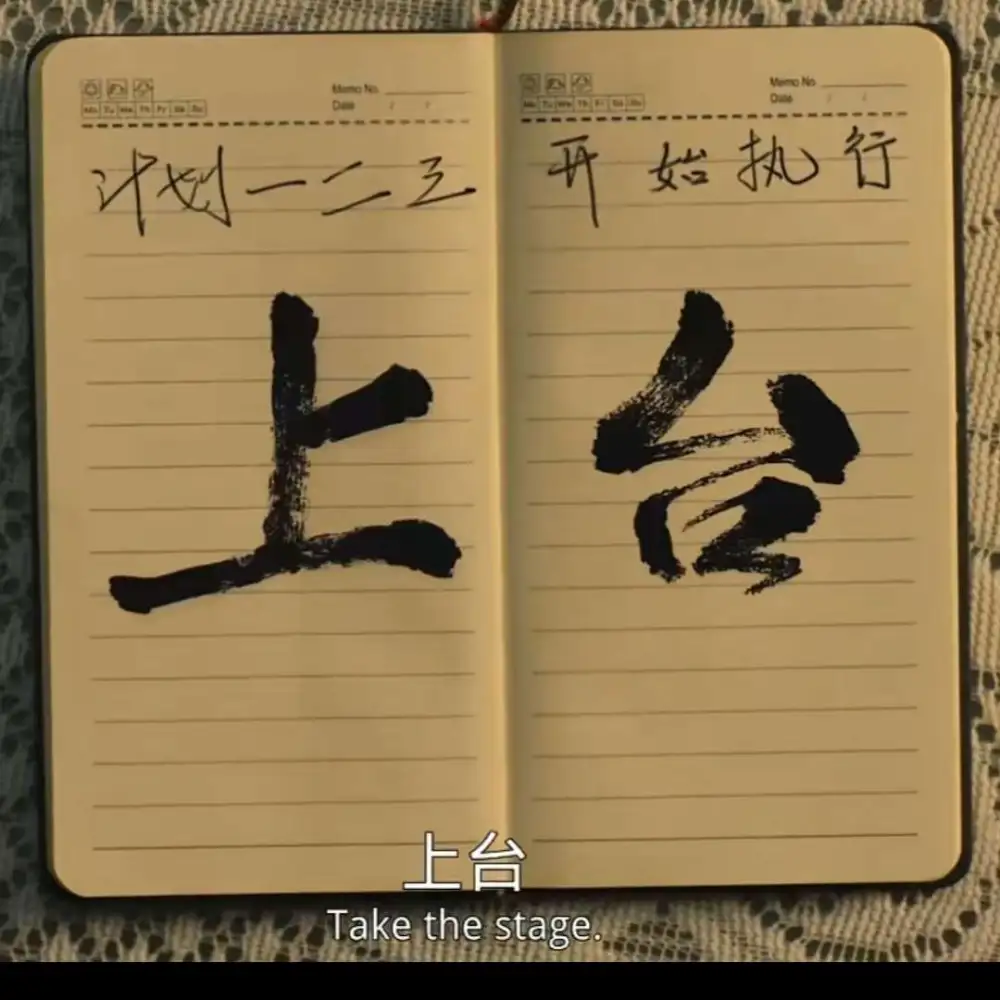 Memo No.
Date / /
Mo Tu We Th Fr Sa Su
Memo No.
Date / /
Mo Tu We Th Fr Sa Su
计划一二三 开始执行
上台
上台
Take the stage.